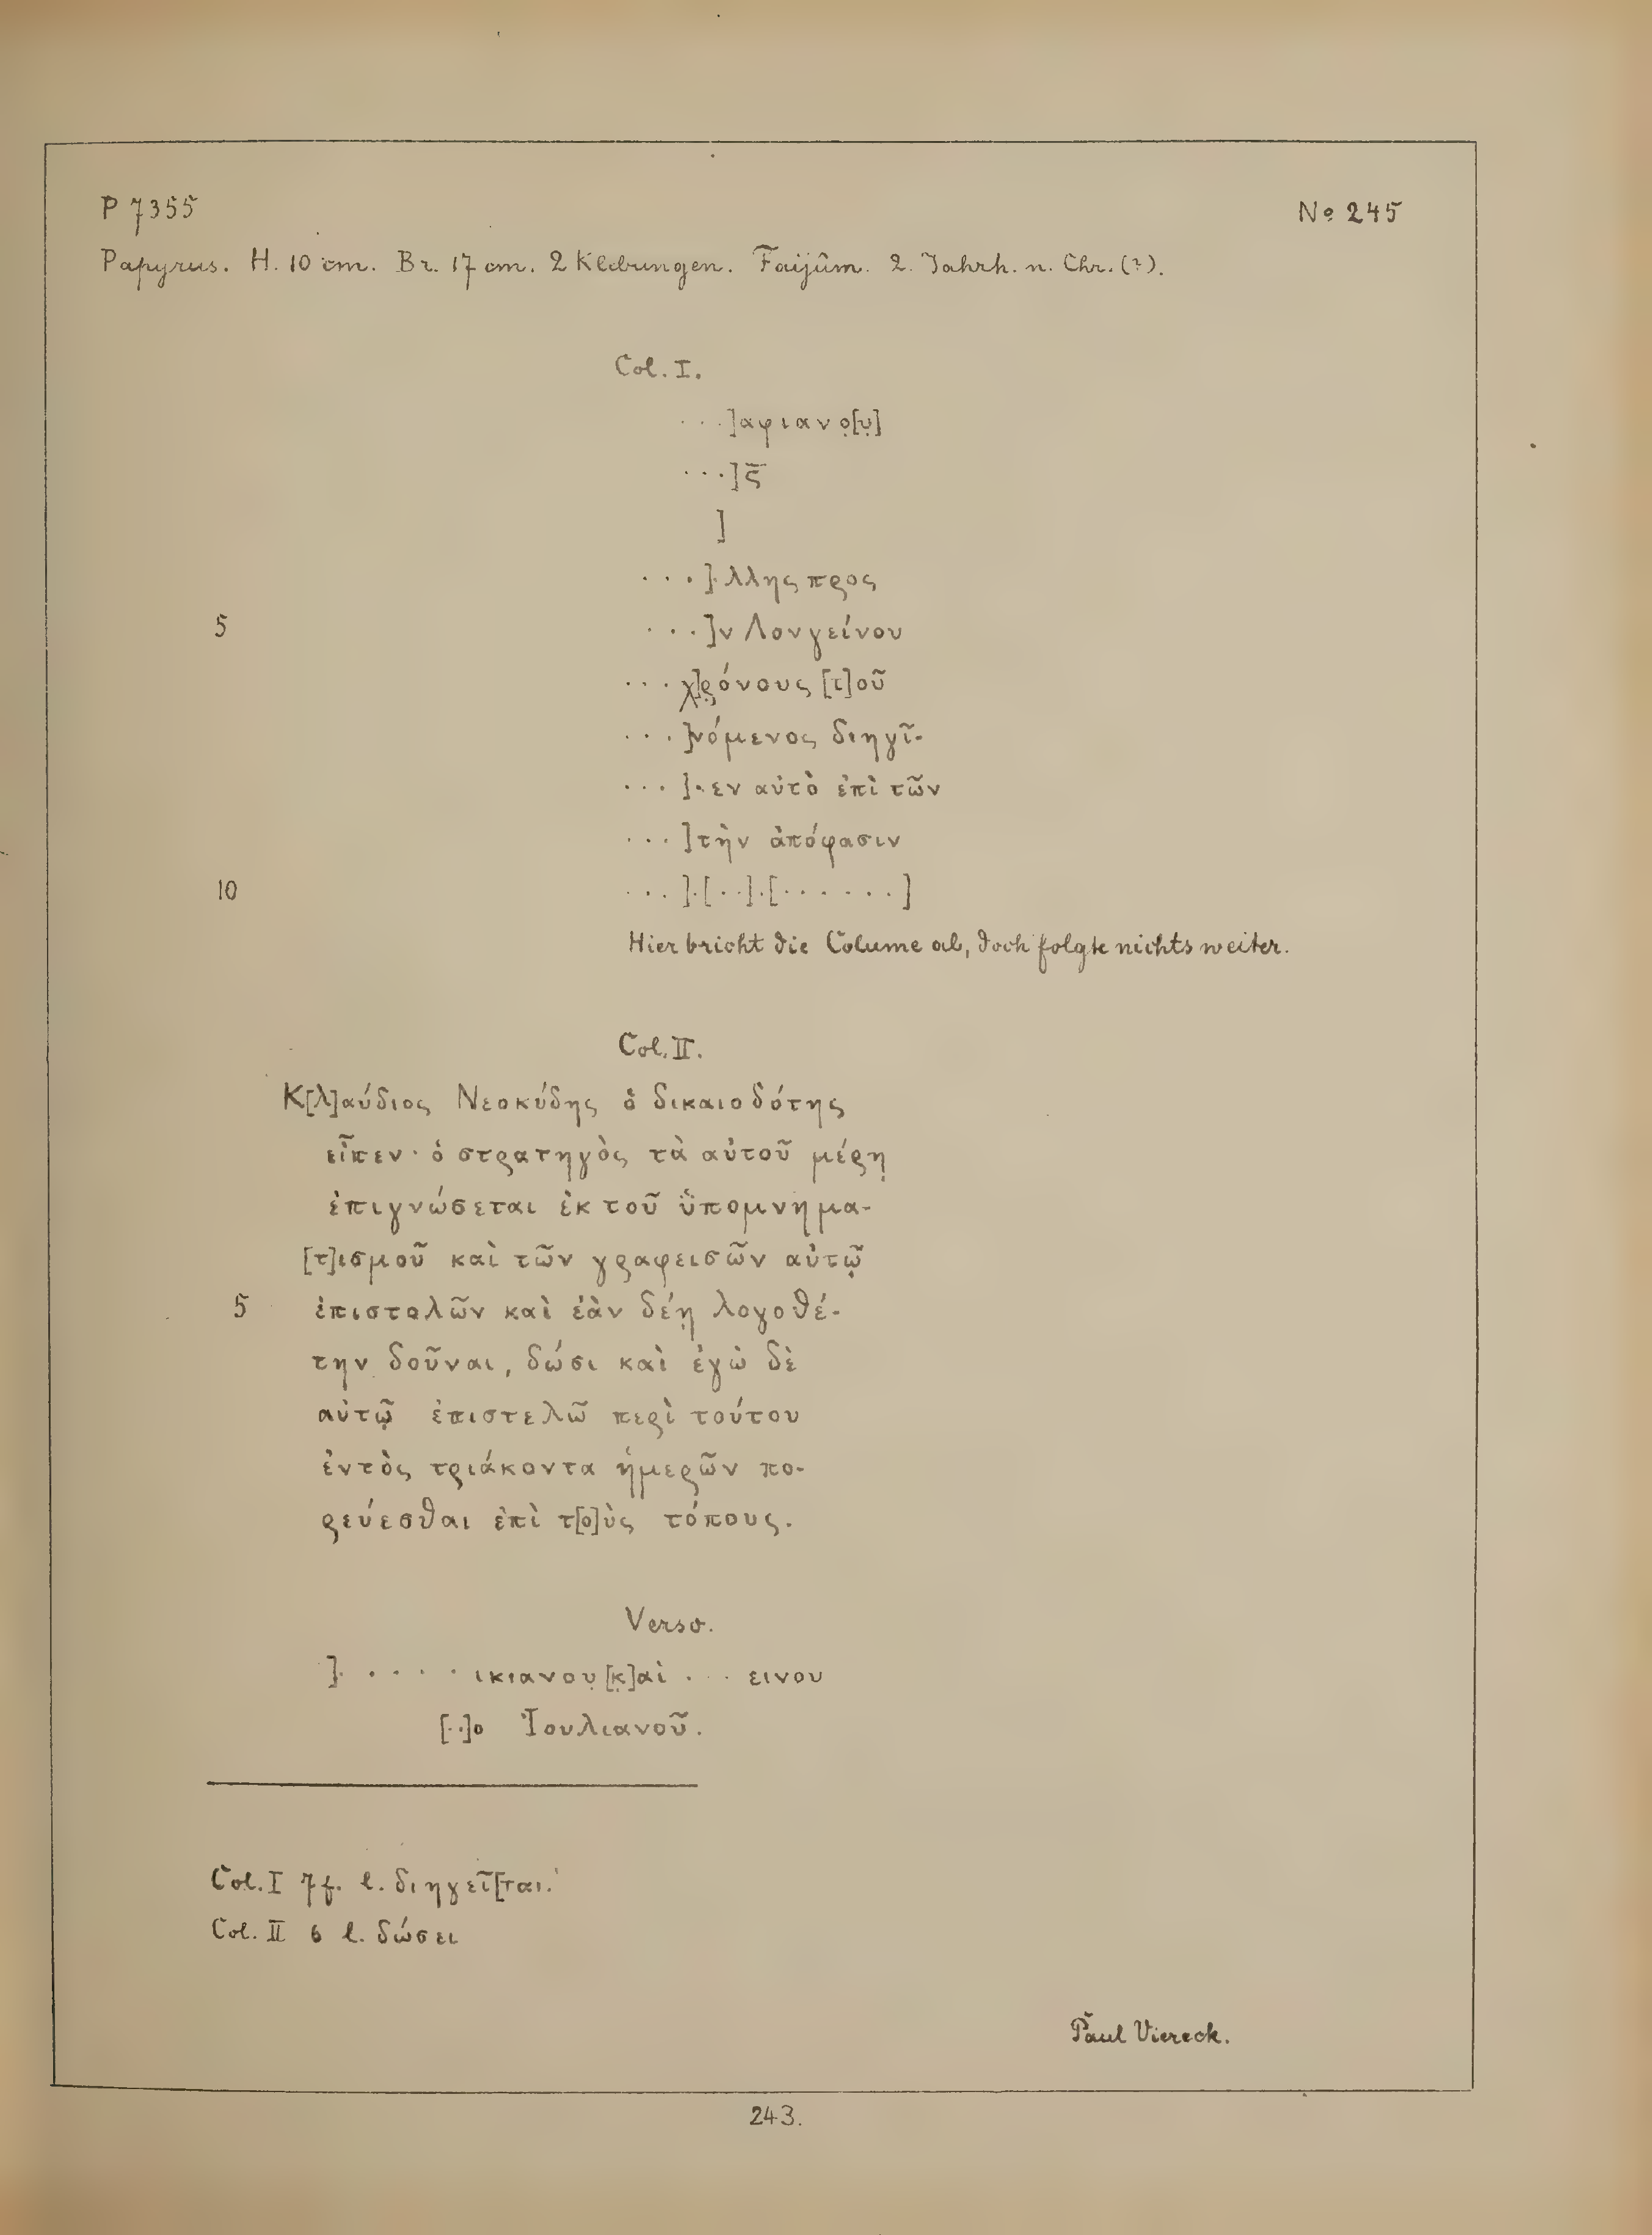 P 7355
No 245
Papyrus. H. 10 cm. Br. 17 cm. 2 Klebungen. Faijûm. 2. Jahrh. n. Chr. (?).
Col. I.
. . .]αφιανο̣[υ̣]
. . .]ς̄
]
. . .]. λλης προς
5 . . .]ν Λονγείνου
. . . χ]ρ̣όνους [τ]οῦ
. . .]νόμενος διηγῖ-
. . .]. εν αὐτὸ ἐπὶ τῶν
. . .]τὴν ἀπόφασιν
10 . . .].[. .].[. . . . . .]
Hier bricht die Colume ab, doch folgte nichts weiter.
Col. II.
Κ[λ]αύδιος Νεοκύδης ὁ δικαιοδότης
εἶπεν· ὁ στρατηγὸς τὰ αὐτοῦ μέρη̣
ἐπιγνώσεται ἐκ τοῦ ὑ̈πομνημα-
[τ]ισμοῦ καὶ τῶν γραφεισῶν αὐτῷ
5 ἐπιστολῶν καὶ ἐὰν δέῃ λογοθέ-
την δοῦναι, δώσι καὶ ἐγὼ δὲ
αὐτῷ ἐπιστελῶ περὶ τούτου
ἐντὸς τριάκοντα ἡμερῶν πο-
ρεύεσθαι ἐπὶ τ[ο]ὺς τόπους.
Verso.
]. . . . . ικιανου̣ [κ̣]αὶ . . . εινου
[. .]ο Ἰουλιανοῦ.
Col. I 7 f. l. διηγεῖ[ται.
Col. II 6 l. δώσει
Paul Viereck.
243.